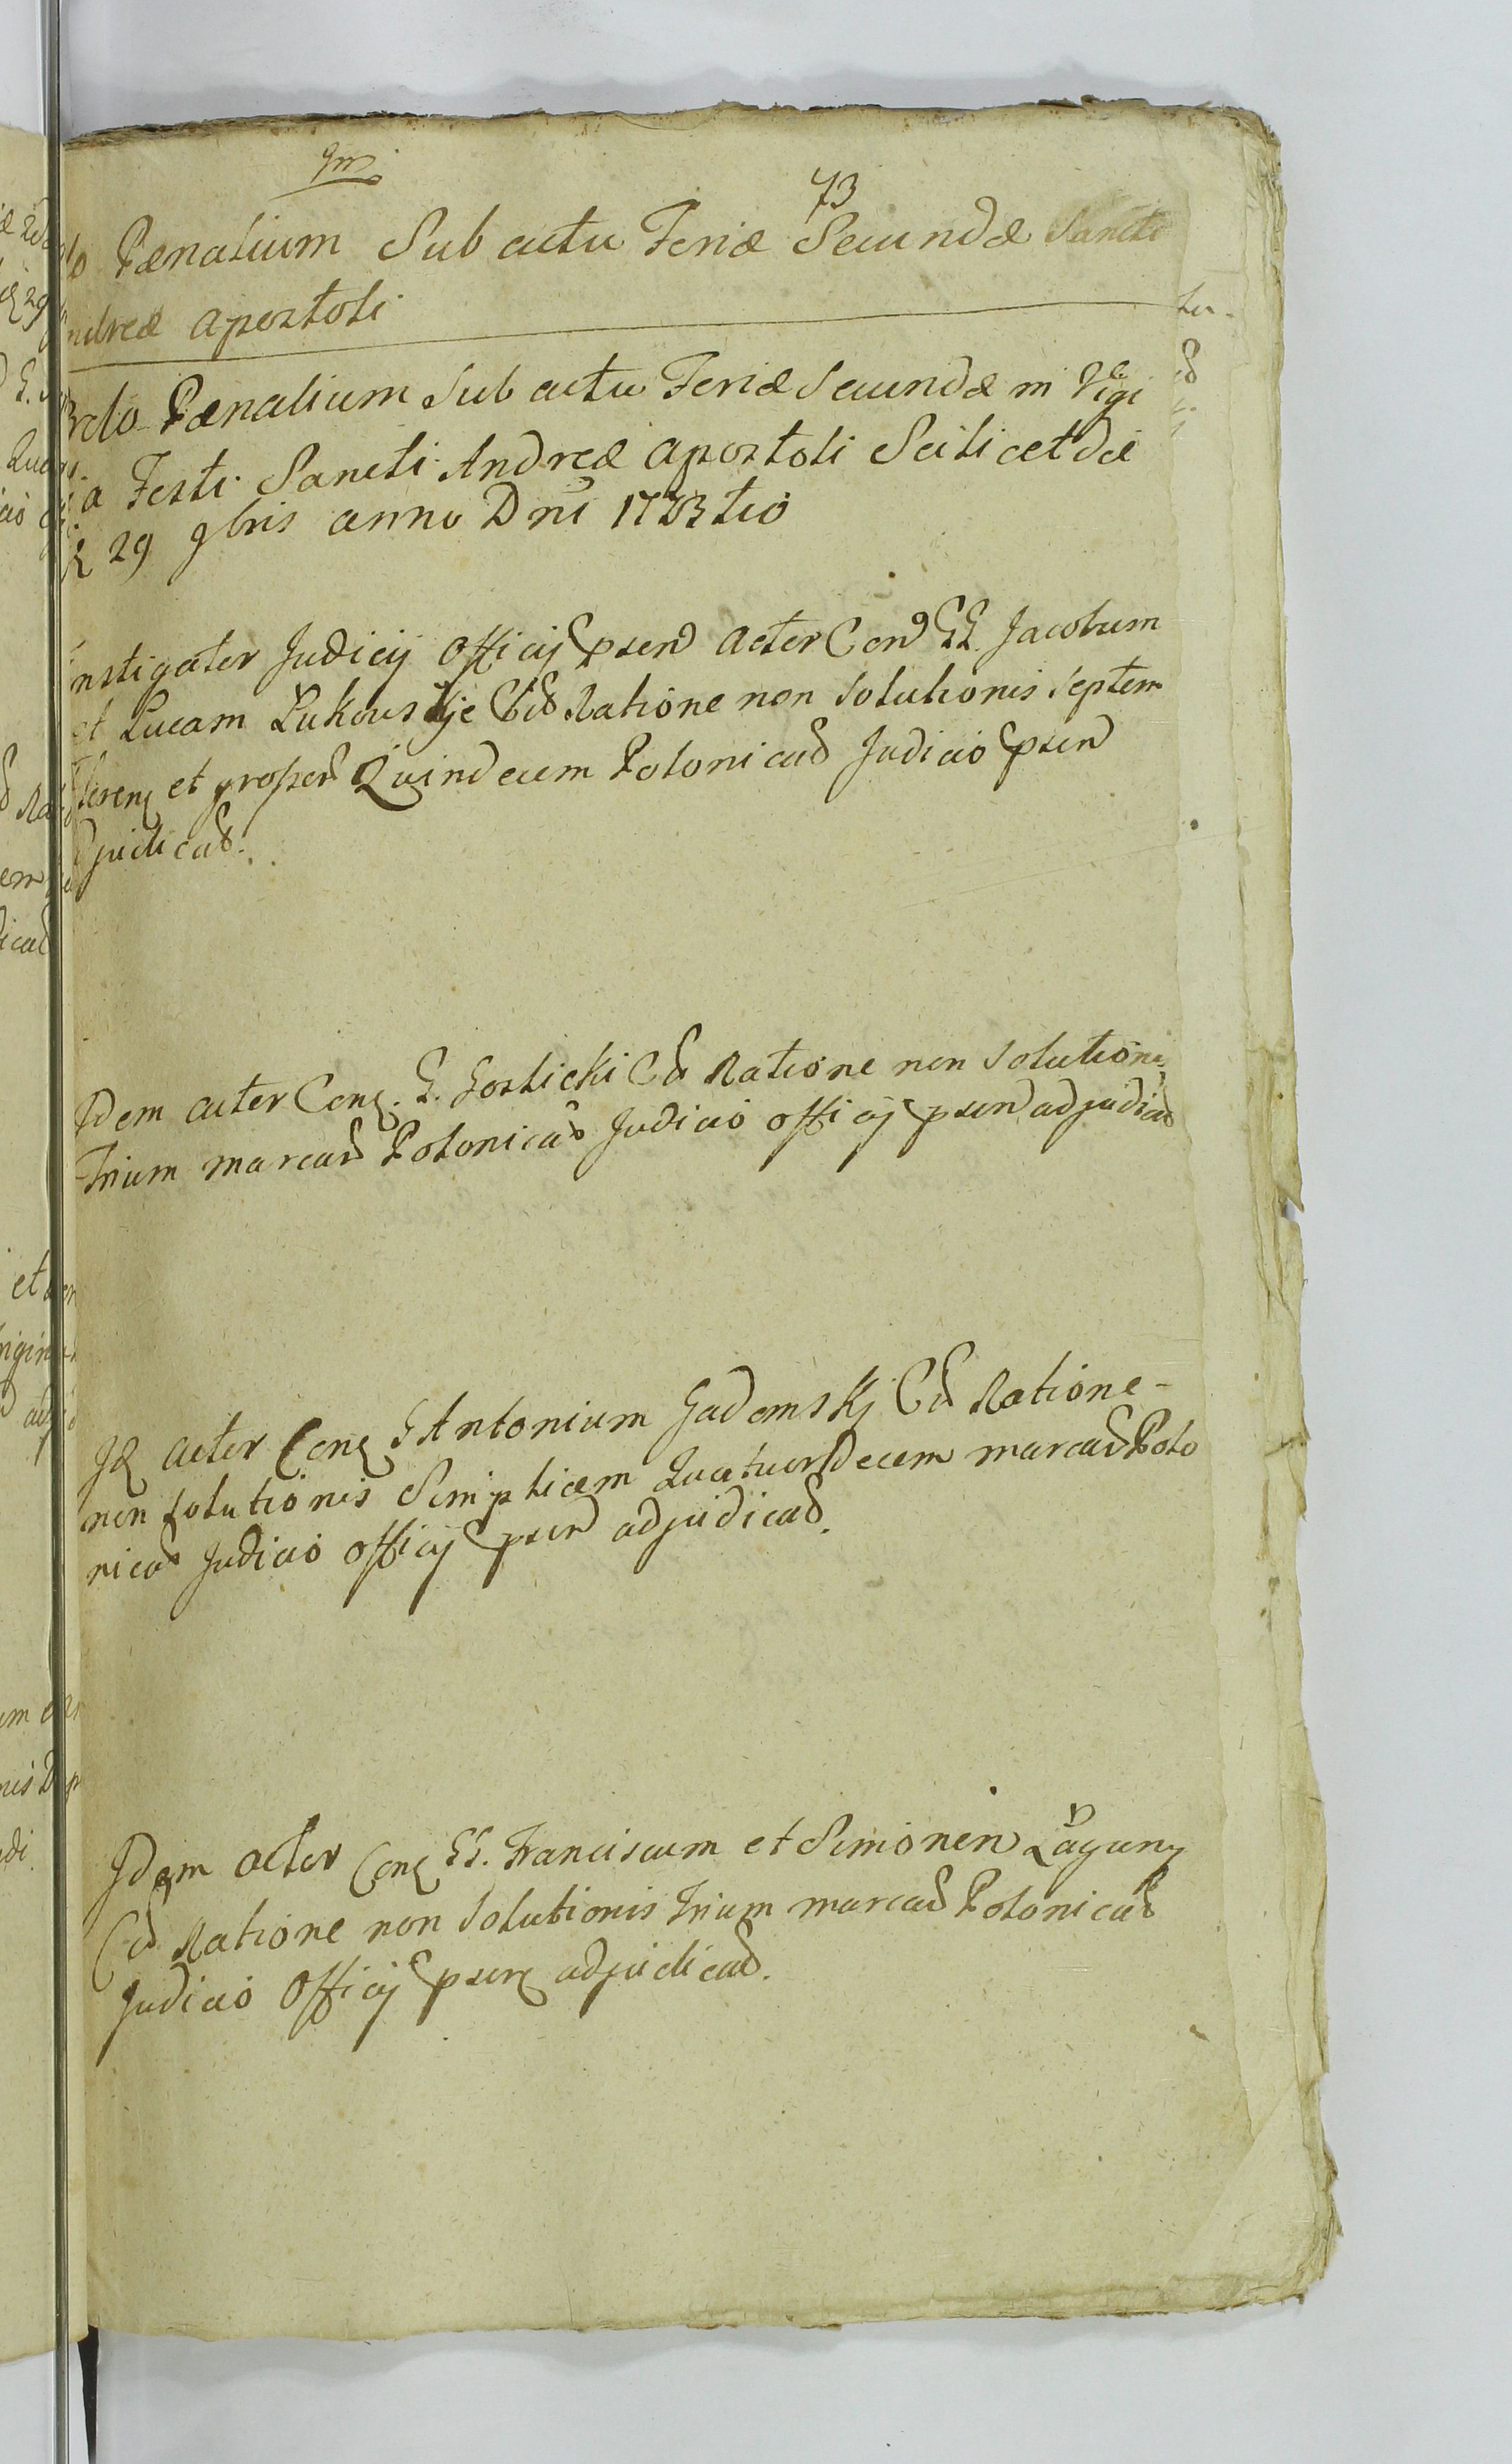 73
Pænalium Sub actu Feriæ Secundæ Sancti
ndreæ apostoli
rdo Pænalium Sub actu Feriæ Secundæ in Vigi
a Festi Sancti Andreæ apostoli Scilicet die
29 9bris anno Dni 1723 tio
nstigator Judicij Officij psen Actor Con GG. Jacobum
et Lucam Lukowskje Cit Ratione non Solutionis Septem
et grossor Quindecem Polonicad Judicio psen
djudicad.
Idem actor Con. G. Goslicki Cit Ratione non Solutionis
Trium marcar Polonicad Judicio officij psen adjudicad
Id actor Con G Antonium Gadomskj Cit Ratione-
non Solutionis Simplicem Quatuordecem marcad Polo
nicad Judicio officij psen adjudicad.
Idem actor Con GG. Franciscum et Simonen Laguny
Cit Ratione non Solutionis Trium marcad Polonicad
Judicio Officij psen adjudicad.